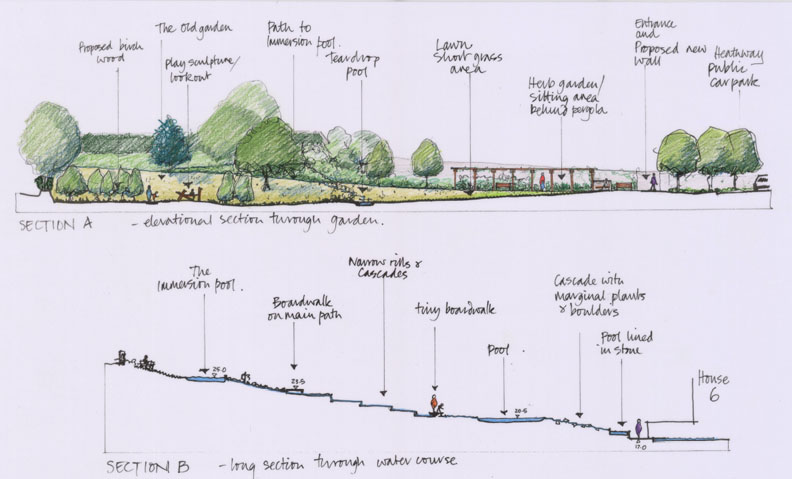 Proposed birch
wood
The old garden
Play sculpture/
lookout
Path to
Immersion pool.
Teardrop
pool
Lawn
Short grass
area
Herb garden/
sitting area
behind pergola
Entrance
and
Proposed new
wall
Heathway
public
car park
SECTION A - elevational section through garden.
The
Immersion pool.
Boardwalk
on main path
Narrow rills &
Cascades
tiny boardwalk
Pool.
Cascade with
marginal plants
& boulders
Pool lined
in stone
House
6
25.0
23.5
20.5
17.0
SECTION B - long section through water course